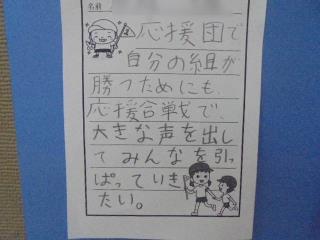 名前
応援団で
自分の組が
勝つためにも、
応援合戦で、
大きな声を出し
てみんなを引っ
ぱっていき
たい。